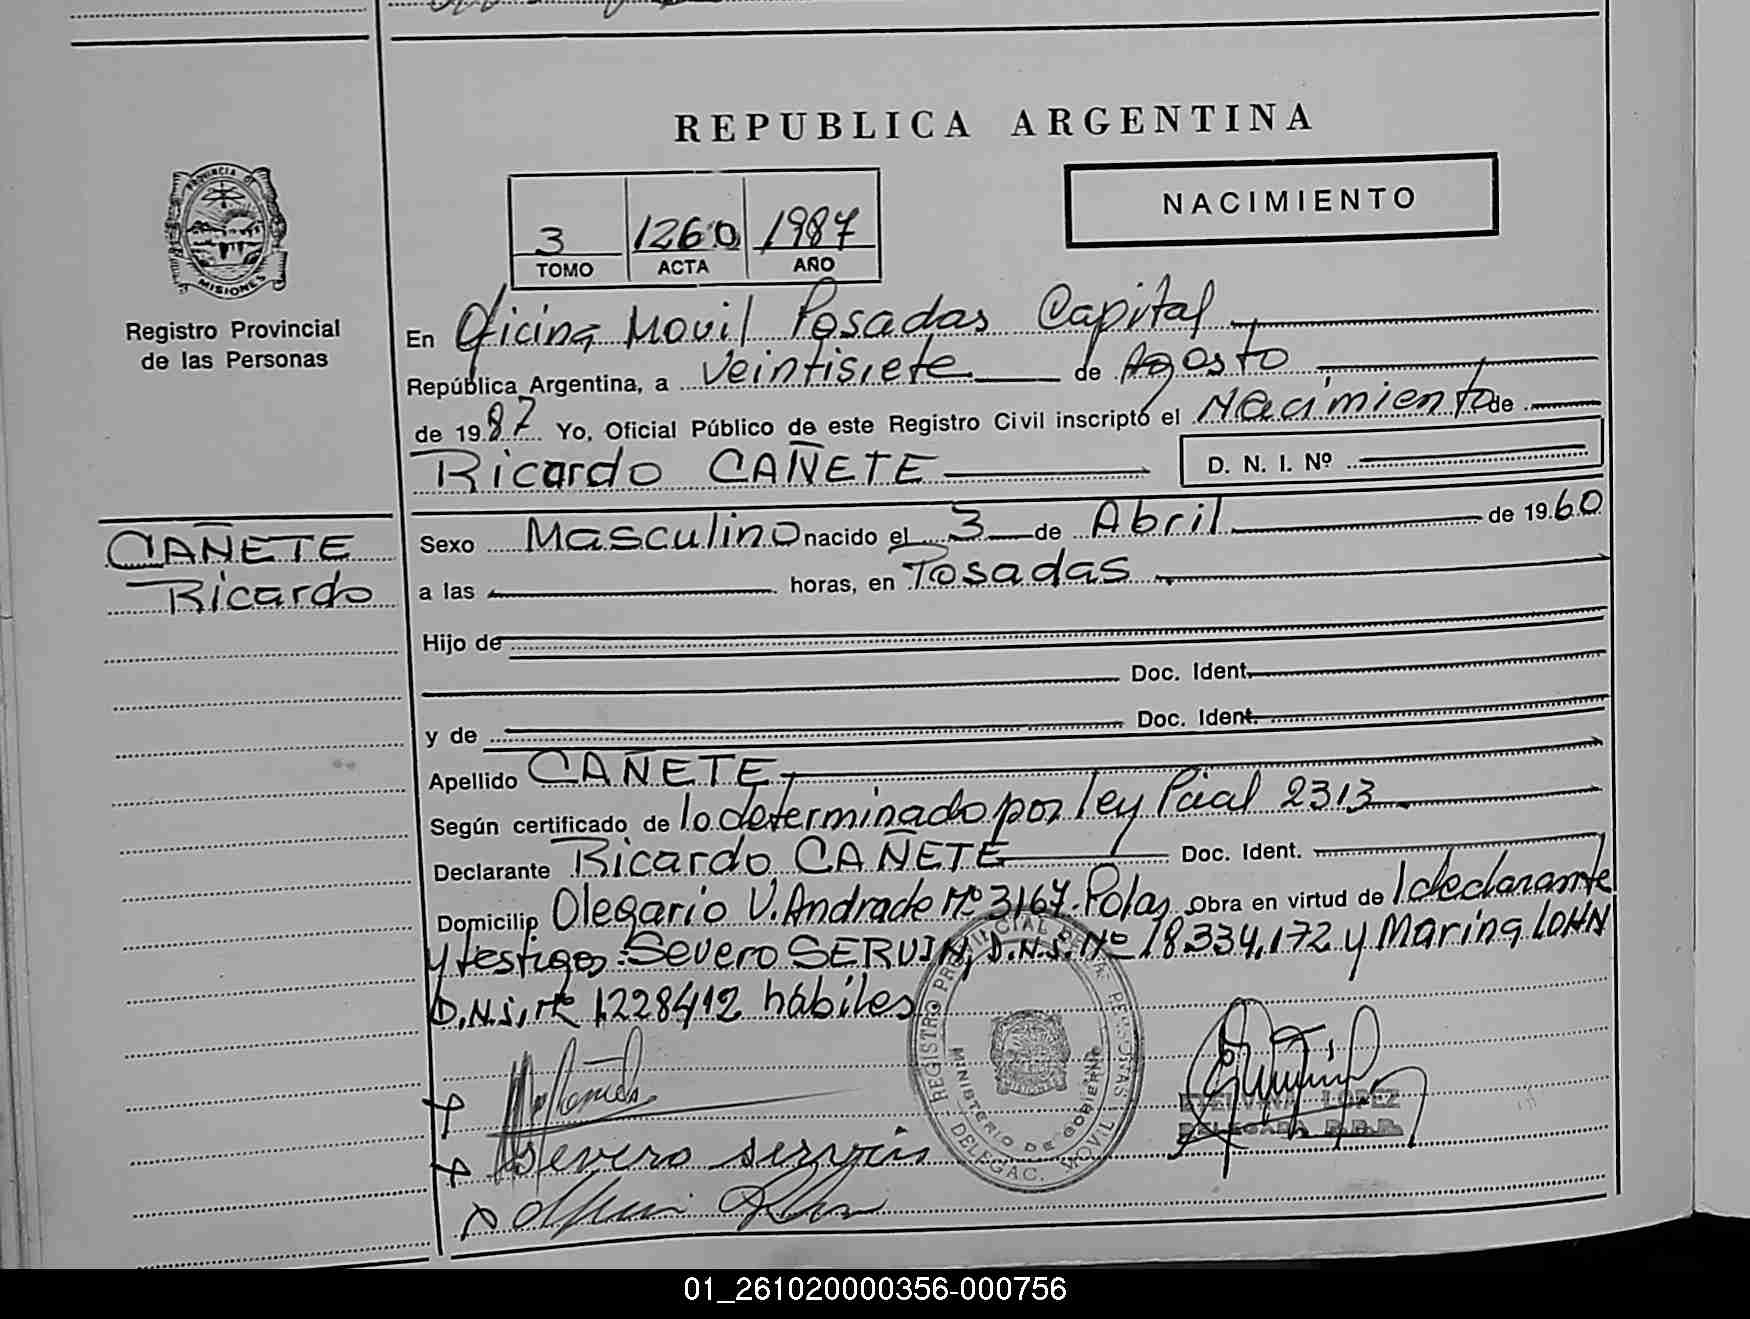 REPUBLICA ARGENTINA
NACIMIENTO
3 1260 1987
TOMO ACTA AÑO
PROVINCIA DE MISIONES
Registro Provincial
de las Personas
CAÑETE
Ricardo
En Oficina Movil Posadas Capital
República Argentina, a veintisiete de Agosto
de 1987 Yo, Oficial Público de este Registro Civil inscripto el Nacimiento de
Ricardo CAÑETE D. N. I. Nº
Sexo Masculino nacido el 3 de Abril de 1960
a las horas, en Posadas
Hijo de
Doc. Ident.
y de Doc. Ident.
Apellido CAÑETE
Según certificado de lo determinado por ley Pcial 2313
Declarante Ricardo CAÑETE Doc. Ident.
Domicilio Olegario V. Andrade Nº 3167. Pdas. Obra en virtud de l declarante
y testigos: Severo SERVIN, D.N.I. Nº 18.334.172 y Marina LOHN
D.N.I. Nº 1228412 hábiles
REGISTRO PROVINCIAL DE LAS PERSONAS
MINISTERIO DE GOBIERNO
DELEGAC. MOVIL
Severo servin
LOPEZ
01_261020000356-000756